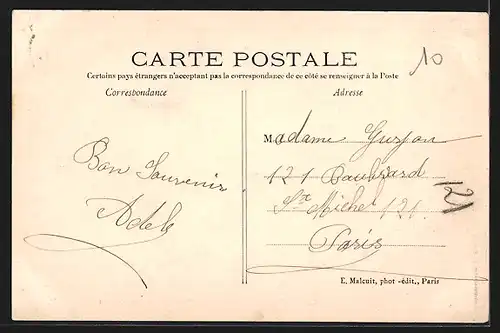 CARTE POSTALE
10
Certains pays étrangers n'acceptant pas la correspondance de ce côté se renseigner à la Poste
Correspondance
Adresse
Bon Souvenir
Adele
Madame Guyon
121 Boulevard
St Michel 121.
Paris
E. Malcuit, phot-édit., Paris